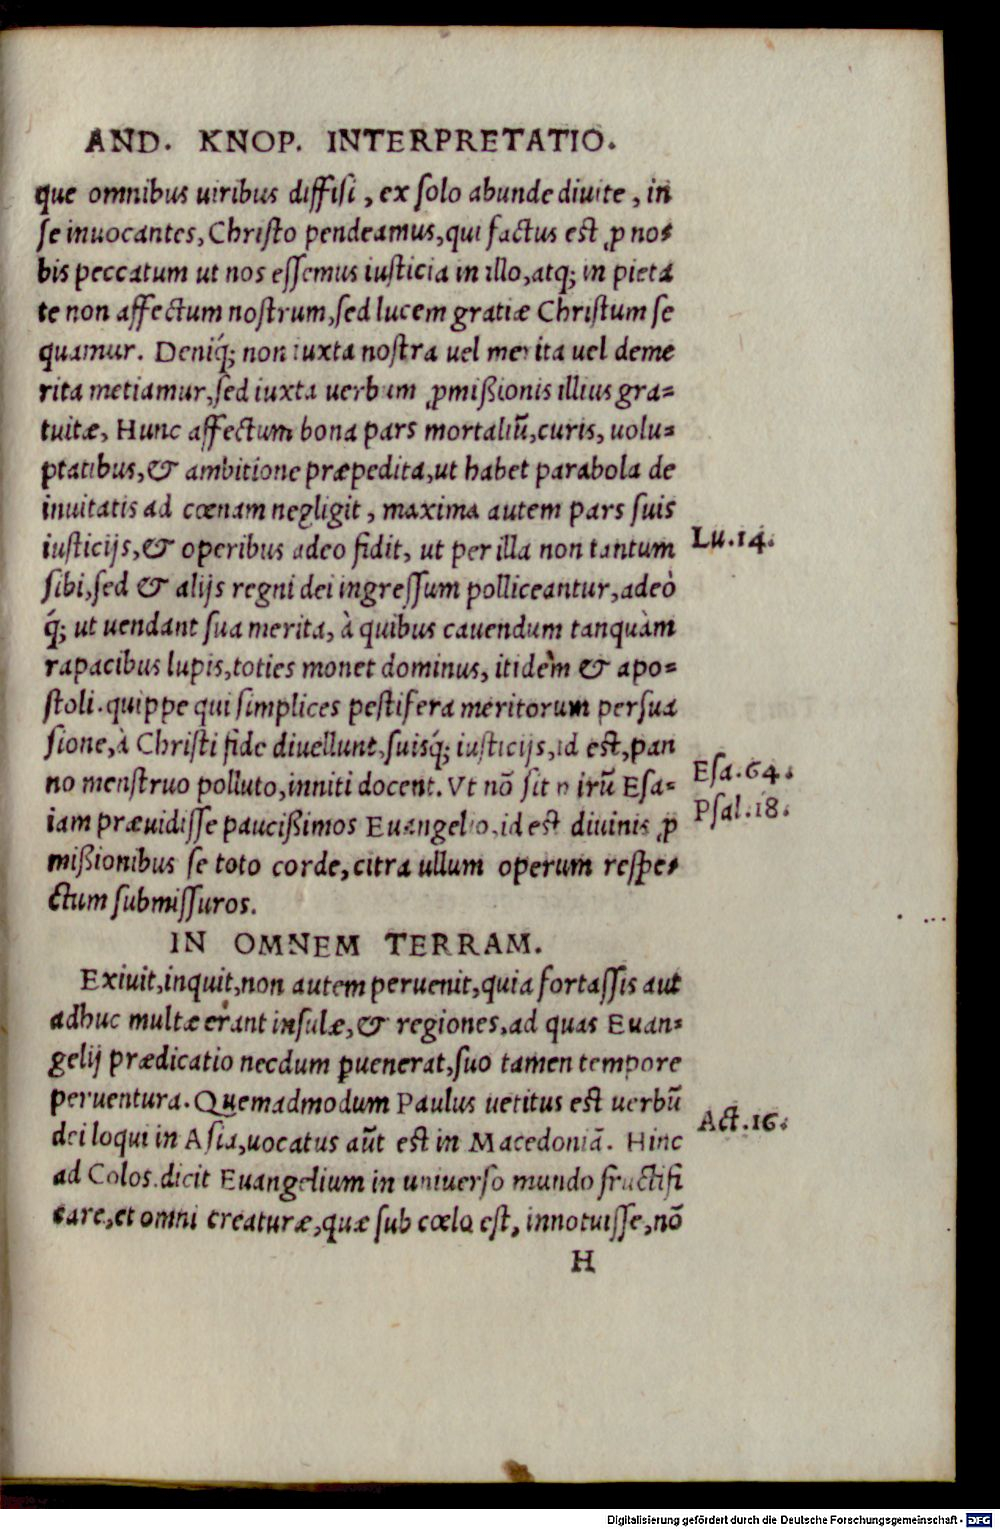 AND. KNOP. INTERPRETATIO.
que omnibus uiribus diffisi, ex solo abunde diuite, in
se inuocantes, Christo pendeamus, qui factus est ꝓ no⸗
bis peccatum ut nos essemus iusticia in illo, atq́; in pieta
te non affectum nostrum, sed lucem gratiæ Christum se
quamur. Deniq́; non iuxta nostra uel merita uel deme
rita metiamur, sed iuxta uerbum ꝓmißionis illius gra⸗
tuitæ, Hunc affectum bona pars mortaliū, curis, uolu⸗
ptatibus, & ambitione præpedita, ut habet parabola de
inuitatis ad cœnam negligit, maxima autem pars suis
iusticijs, & operibus adeo fidit, ut per illa non tantum
Lu.14.
sibi, sed & alijs regni dei ingressum polliceantur, adeò
q́; ut uendant sua merita, à quibus cauendum tanquàm
rapacibus lupis, toties monet dominus, itidèm & apo⸗
stoli. quippe qui simplices pestifera meritorum persua
sione, à Christi fide diuellunt, suisq́; iusticijs, id est, pan
no menstruo polluto, inniti docent. Vt nō sit mirū Esa⸗
Esa.64.
iam præuidisse paucißimos Euangelio, id est diuinis ꝓ
Psal.18.
mißionibus se toto corde, citra ullum operum respe⸗
ctum submissuros.
IN OMNEM TERRAM.
Exiuit, inquit, non autem peruenit, quia fortassis aut
adhuc multæ erant insulæ, & regiones, ad quas Euan⸗
gelij prædicatio necdum ꝑuenerat, suo tamen tempore
peruentura. Quemadmodum Paulus uetitus est uerbū
dei loqui in Asia, uocatus aūt est in Macedoniā. Hinc
Act.16.
ad Colos. dicit Euangelium in uniuerso mundo fructifi
care, et omni creaturæ, quæ sub cœlo est, innotuisse, nō
H
Digitalisierung gefördert durch die Deutsche Forschungsgemeinschaft - DFG